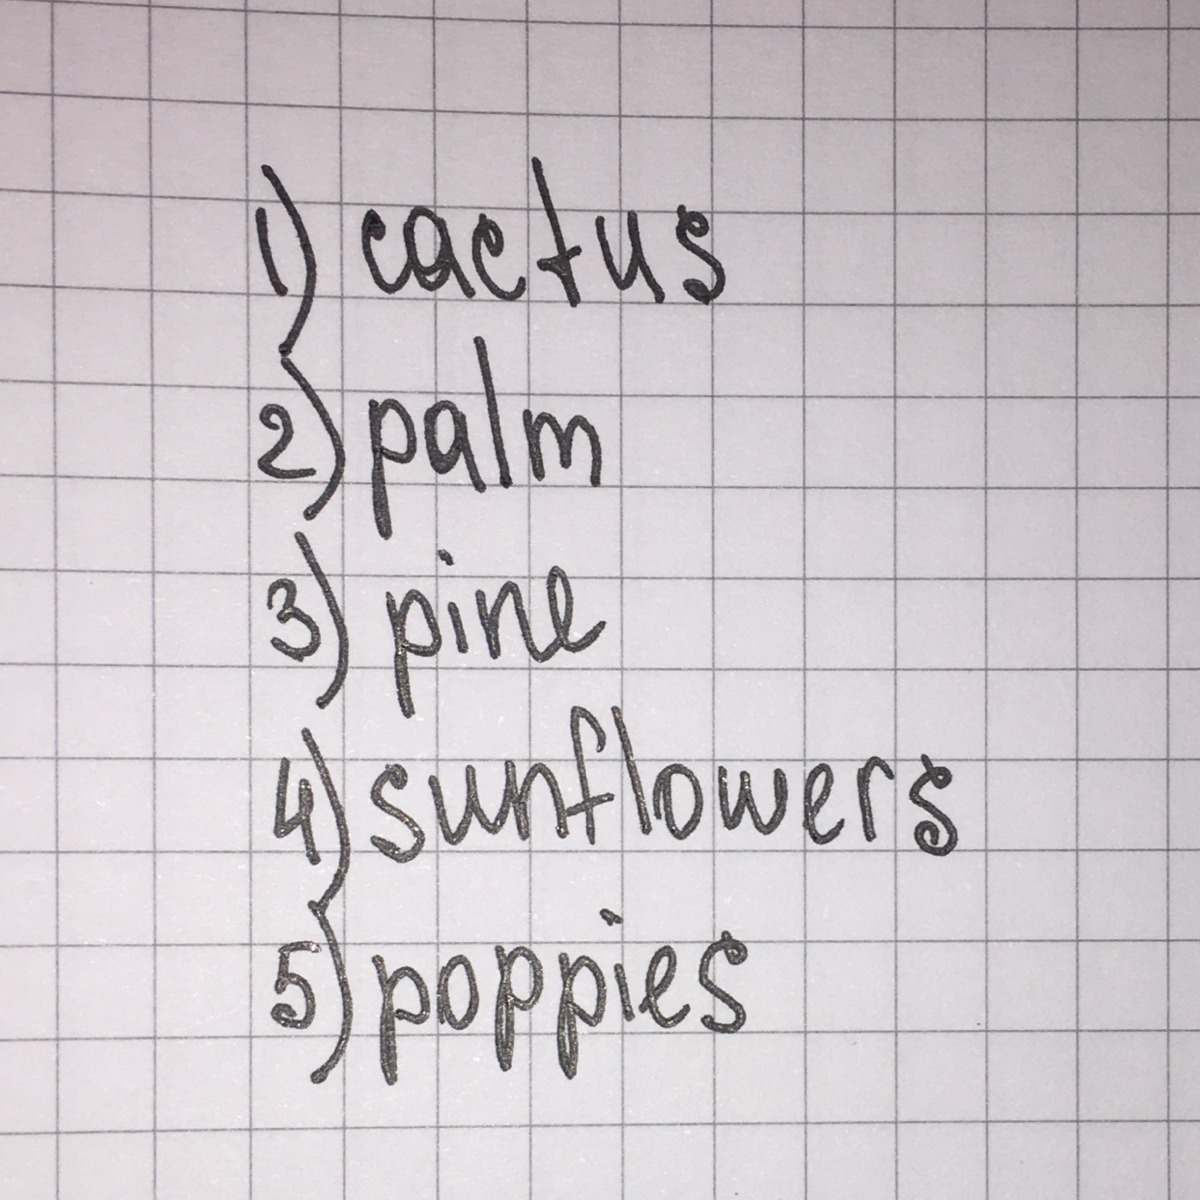 1) cactus
2) palm
3) pine
4) sunflowers
5) poppies